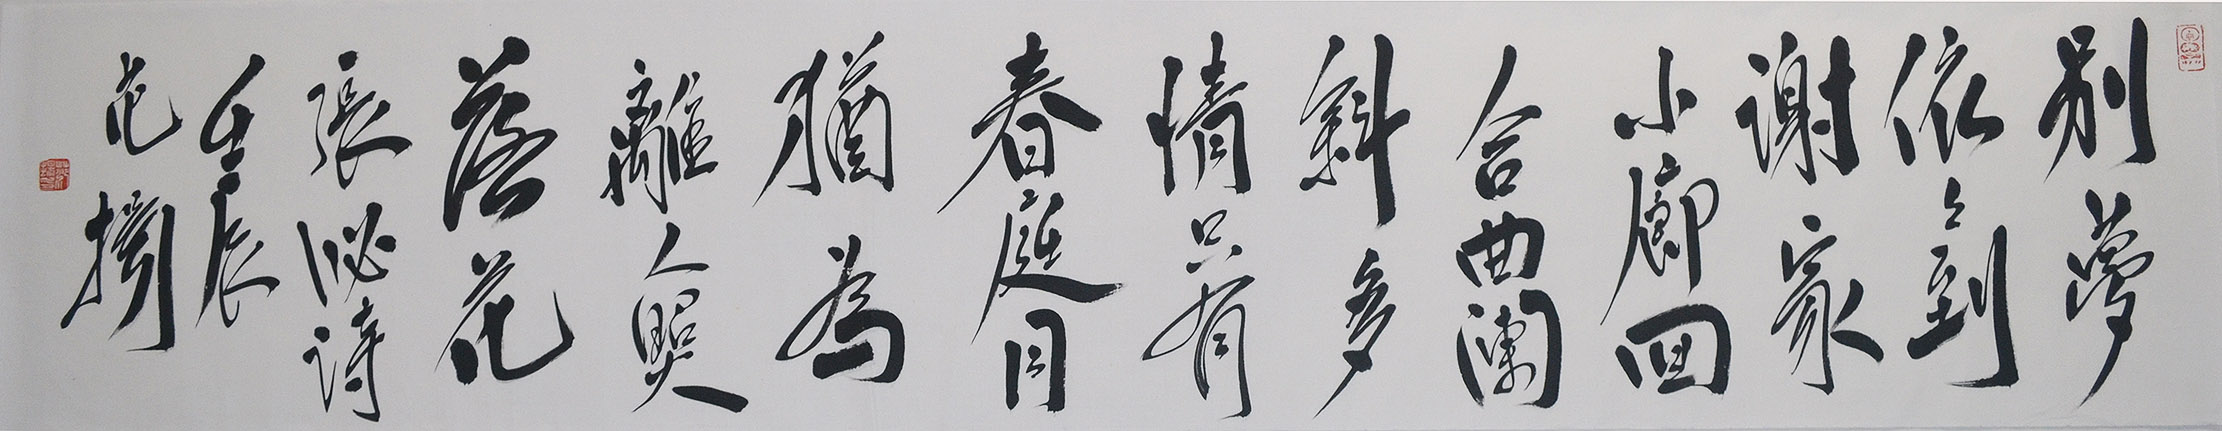 别夢
依々到
謝家
小廊回
合曲闌
斜多
情只有
春庭月
猶為
離人照
落花
張泌詩
壬辰